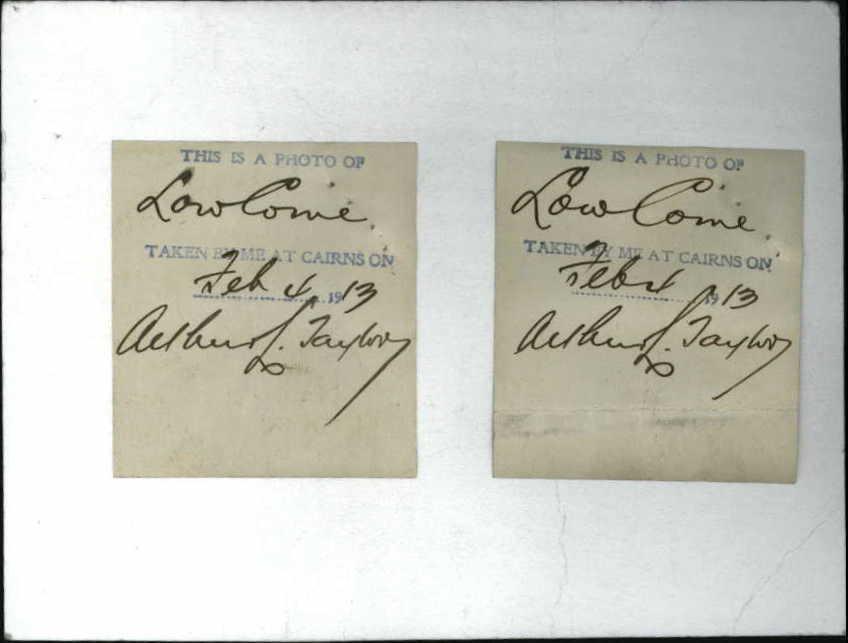 THIS IS A PHOTO OF
Low Come.
TAKEN BY ME AT CAIRNS ON
Feb 4 1913
Arthur L. Taylor
THIS IS A PHOTO OF
Low Come.
TAKEN BY ME AT CAIRNS ON
Feb 4 1913
Arthur L. Taylor